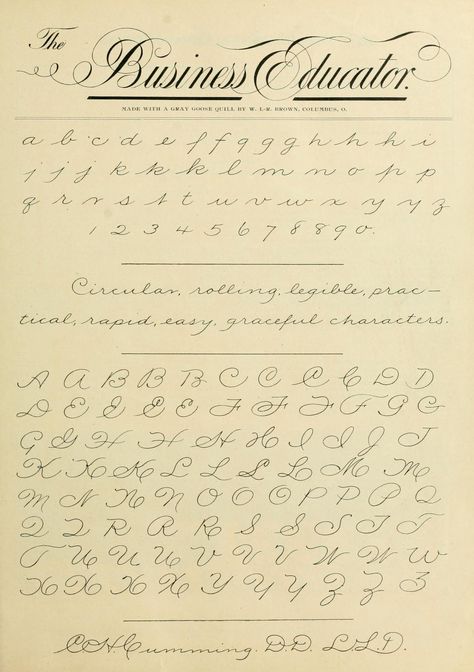 The Business Educator.
MADE WITH A GRAY GOOSE QUILL BY W. L-R. BROWN, COLUMBUS, O.
a b c d e f f g g g h h h i
j j j k k k l m n o p p
q r r s s t t u v v w x y y z
1 2 3 4 5 6 7 8 8 9 0.
Circular, rolling, legible, prac-
tical, rapid, easy, graceful characters.
A A B B B C C C C D D
D E E E E F F F F G G
G G H H H H I I J J
K K K L L L L M M
M N N N O O O P P P Q
Q Q R R R S S S T T
T U U U V V V W W W
X X X X Y Y Y Z Z Z
C. H. Cumming. D.D. L.L.D.